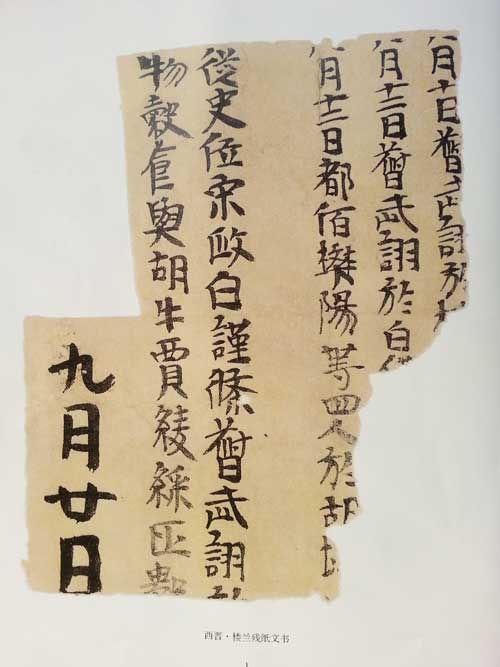 月十日武詡於
月十二日武詡於白
月十二日都佰樊陽等四人於胡
從史位宋政白謹條武詡
物穀食與胡牛賈綾綵匹數
九月廿日
西晋·楼兰残纸文书
1